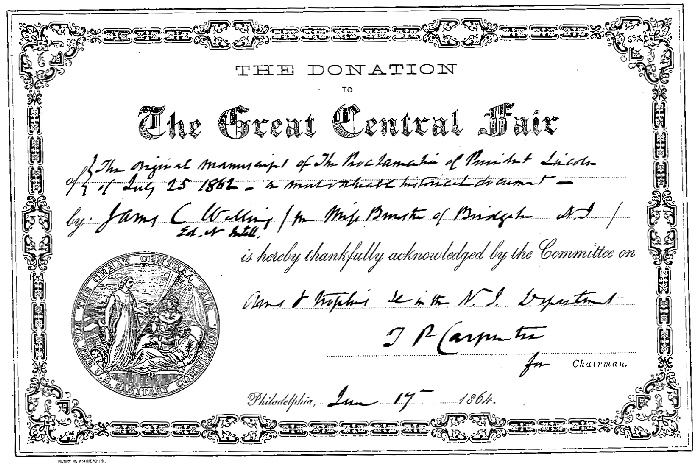 THE DONATION
TO
The Great Central Fair
of The original manuscript of The Proclamation of President Lincoln
of July 25 1862 - a most valuable historical document -
by James C Welling / for Miss of Bridgeton N.J /
Ed. N. Intell.
is hereby thankfully acknowledged by the Committee on
Arms & Trophies &c in the N. J. Department
J P Carpenter
for Chairman.
Philadelphia, June 17 1864.